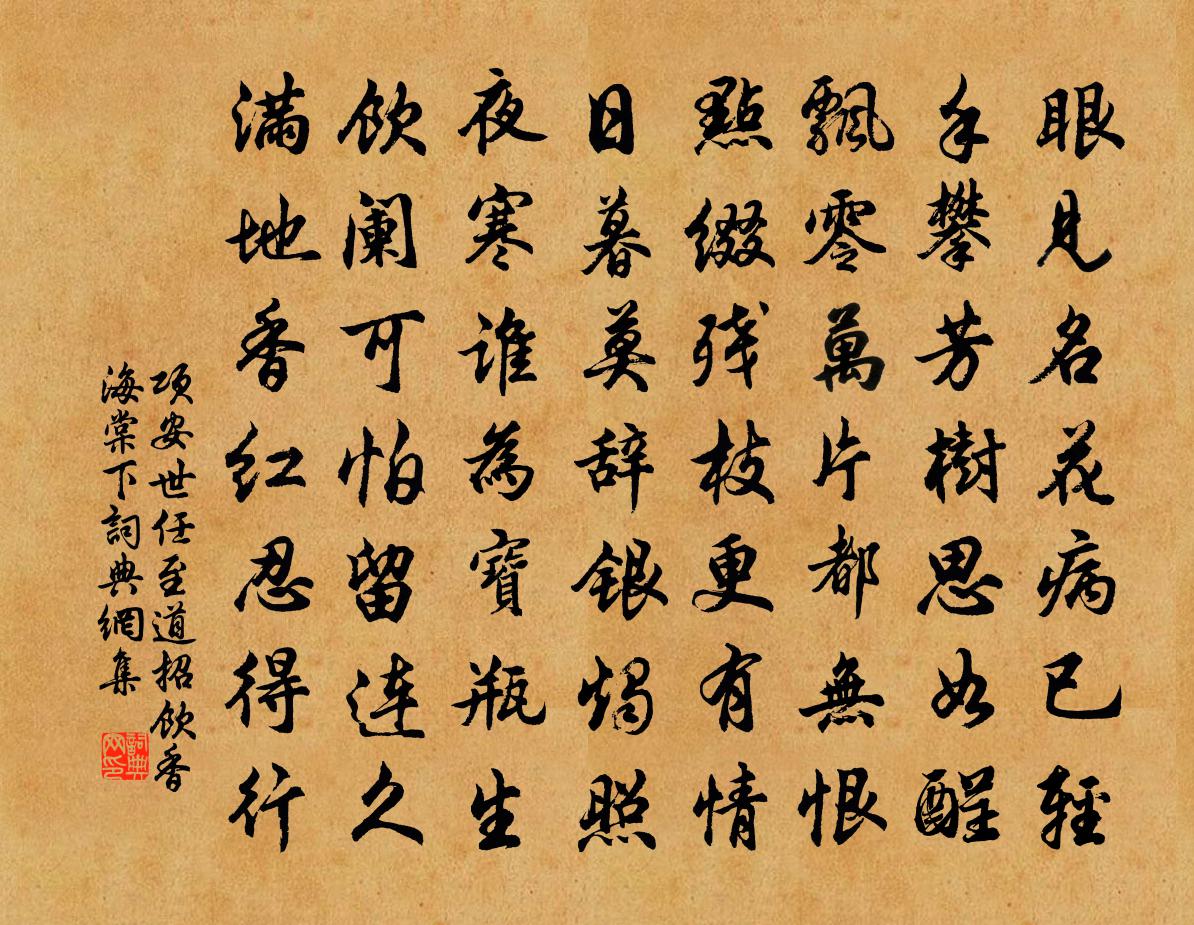 眼見名花病已輕
手攀芳樹思如酲
飄零萬片都無恨
點綴残枝更有情
日暮莫辞銀燭照
夜寒誰為寶瓶生
飲阑可怕留连久
满地香红忍得行
项安世任至道招飲香
海棠下詞典網集
詞典
网印